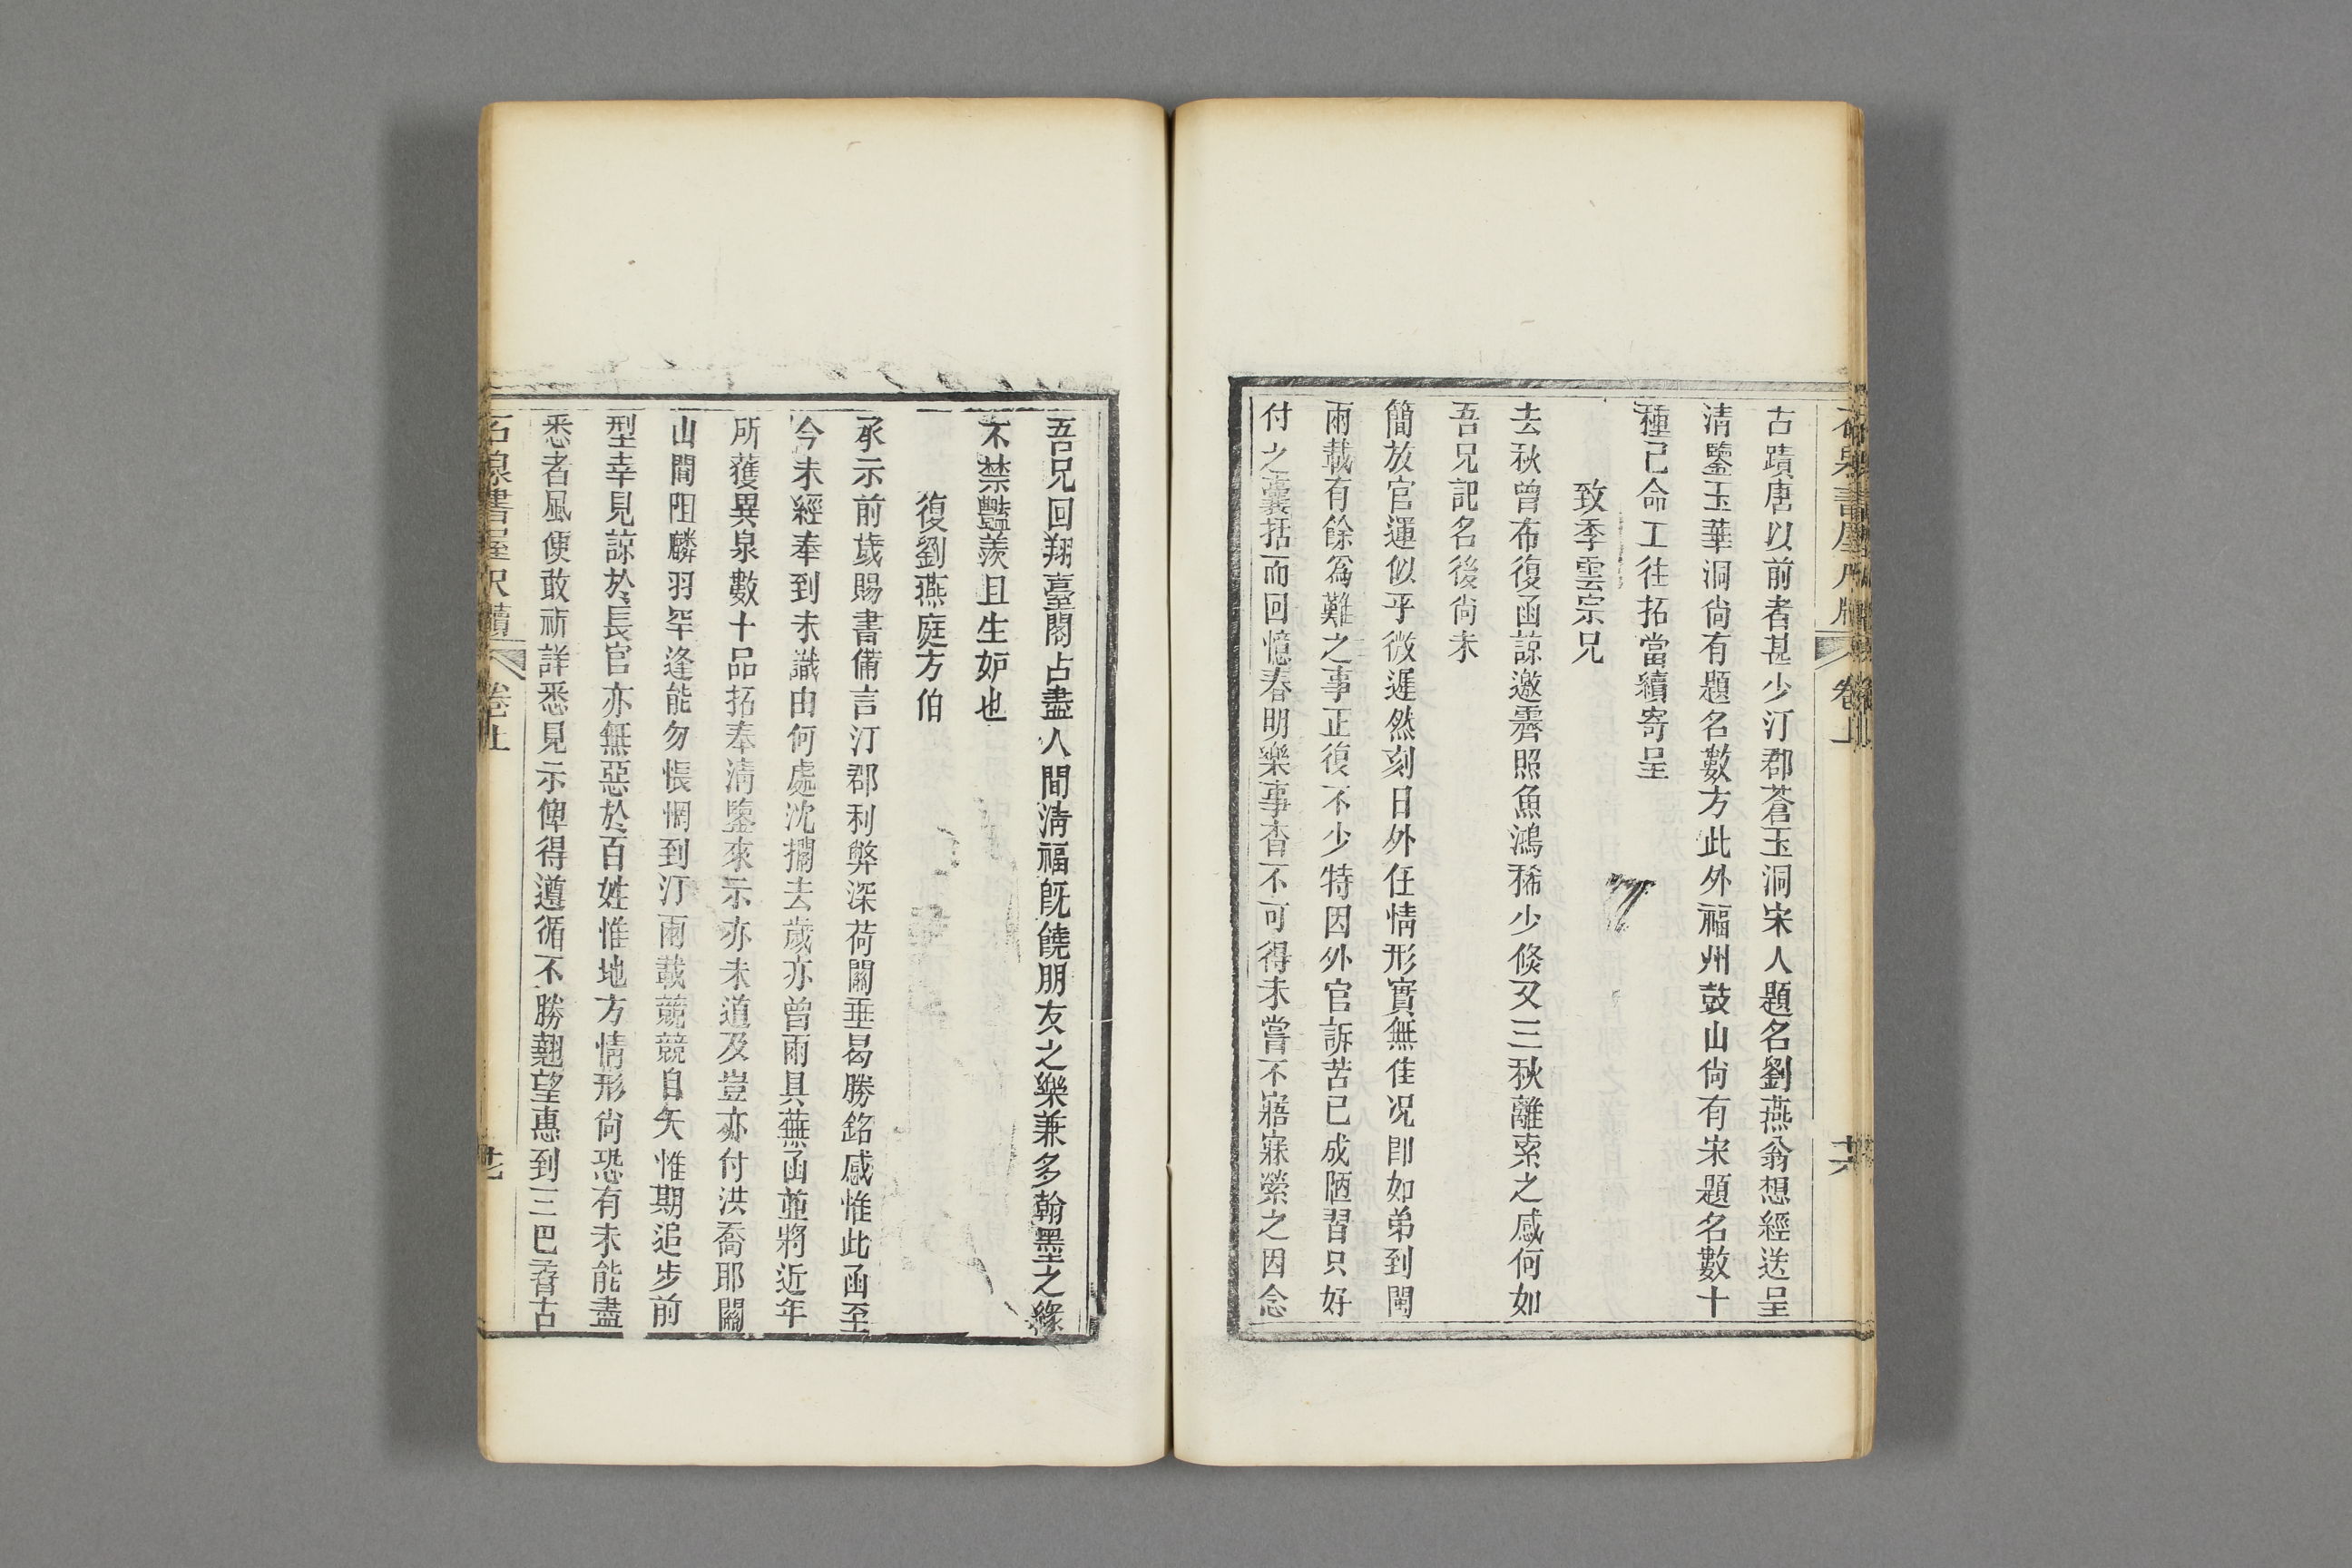 古蹟唐以前者甚少汀郡蒼玉洞宋人題名劉燕翁想經送呈
清鑒玉華洞尙有題名數方此外福州鼓山尙有宋題名數十
種已命工往拓當續寄呈
致季雲宗兄
去秋曾布復函諒邀霽照魚鴻稀少倏又三秋離索之感何如
吾兄記名後尙未
簡放官運似乎微遲然刻日外任情形實無佳況卽如弟到閩
兩載有餘爲難之事正復不少特因外官訴苦已成陋習只好
付之囊括而回憶春明樂事杳不可得未嘗不寤寐縈之因念
卷上
吾兄回翔臺閣占盡人間淸福旣饒朋友之樂兼多翰墨之緣
不禁豔羨且生妒也
復劉燕庭方伯
承示前歲賜書備言汀郡利弊深荷關垂曷勝銘感惟此函至
今未經奉到未識由何處沈擱去歲亦曾兩具蕪函並將近年
所獲異泉數十品拓奉淸鑒來示亦未道及豈亦付洪喬耶關
山間阻麟羽罕逢能勿悵惘到汀兩載兢兢自矢惟期追步前
型幸見諒於長官亦無惡於百姓惟地方情形尙恐有未能盡
悉者風便敢祈詳悉見示俾得遵循不勝翹望惠到三巴孴古
石泉書屋尺牘 卷上